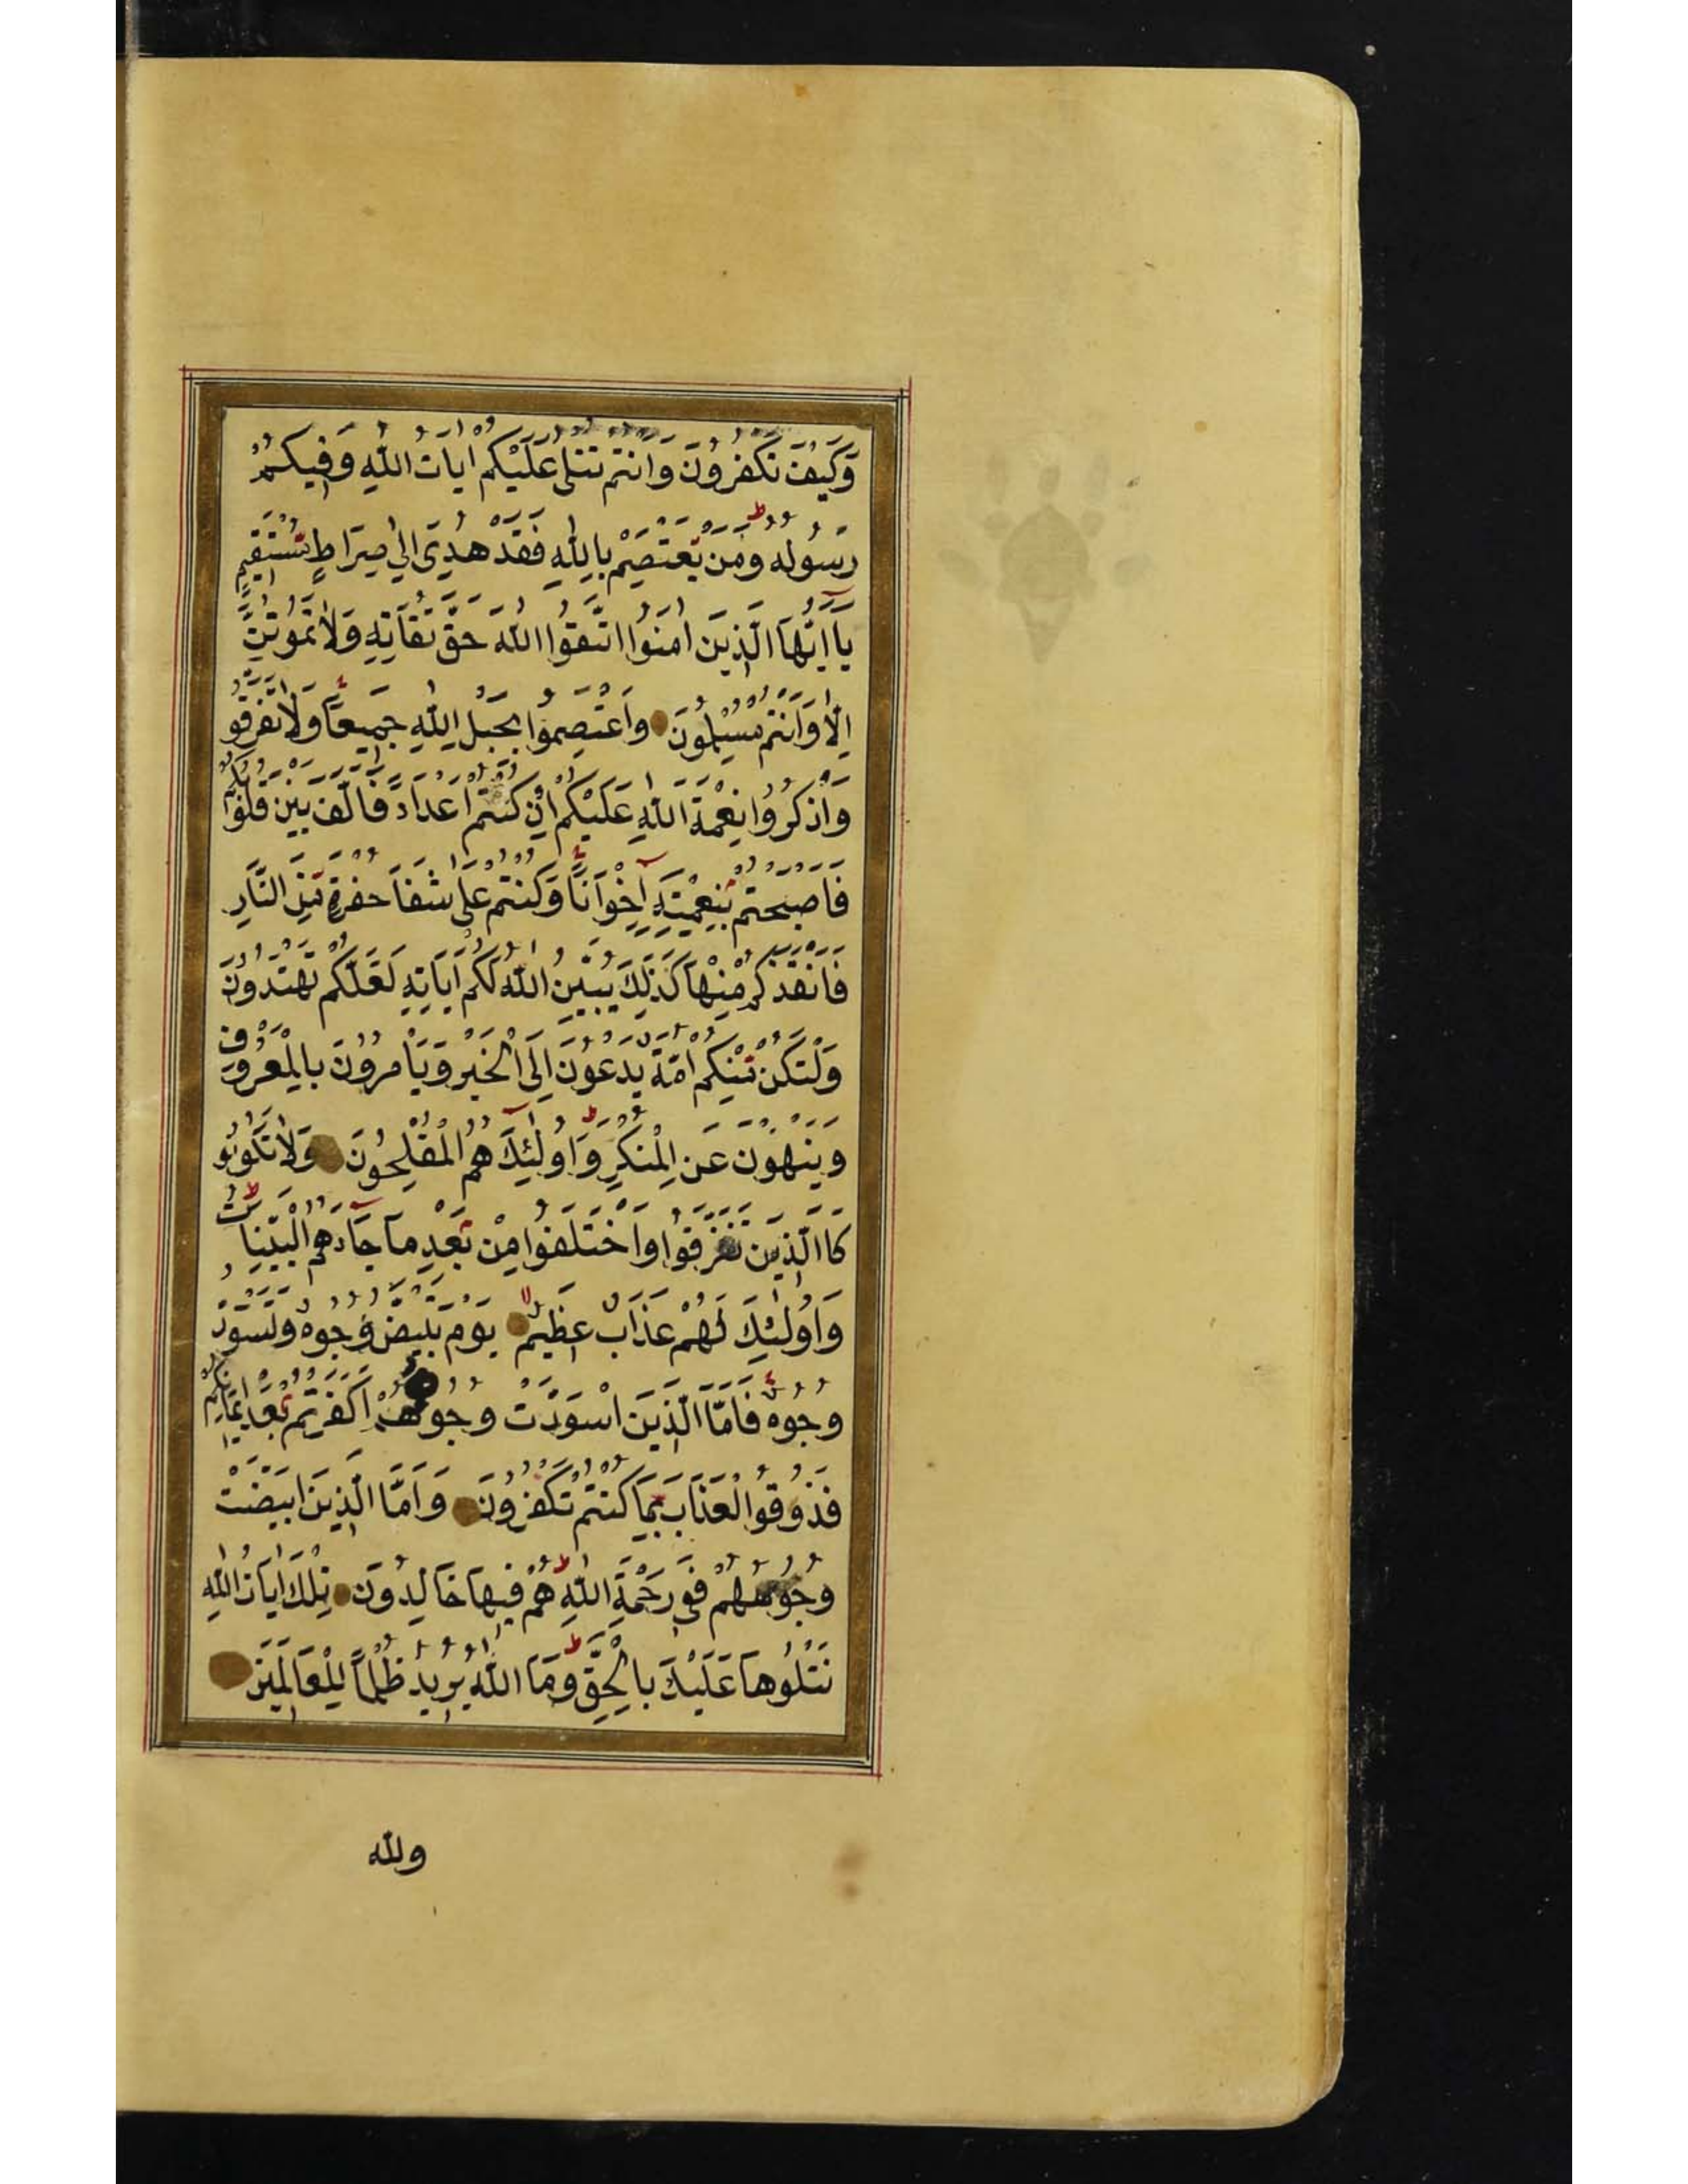 وَكَيْفَ تَكْفُرُونَ وَاَنْتُمْ تُتْلٰى عَلَيْكُمْ اٰيَاتُ اللّٰهِ وَفِيكُمْ
رَسُولُهُ وَمَنْ يَعْتَصِمْ بِاللّٰهِ فَقَدْ هُدِىَ اِلٰى صِرَاطٍ مُسْتَقِيمٍ
يَا اَيُّهَا الَّذِينَ اٰمَنُوا اتَّقُوا اللّٰهَ حَقَّ تُقَاتِهِ وَلَا تَمُوتُنَّ
اِلَّا وَاَنْتُمْ مُسْلِمُونَ وَاعْتَصِمُوا بِحَبْلِ اللّٰهِ جَمِيعًا وَلَا تَفَرَّقُو
وَاذْكُرُوا نِعْمَةَ اللّٰهِ عَلَيْكُمْ اِذْ كُنْتُمْ اَعْدَاءً فَاَلَّفَ بَيْنَ قُلُوبِكُمْ
فَاَصْبَحْتُمْ بِنِعْمَتِهِ اِخْوَانًا وَكُنْتُمْ عَلٰى شَفَا حُفْرَةٍ مِنَ النَّارِ
فَاَنْقَذَكُمْ مِنْهَا كَذٰلِكَ يُبَيِّنُ اللّٰهُ لَكُمْ اٰيَاتِهِ لَعَلَّكُمْ تَهْتَدُونَ
وَلْتَكُنْ مِنْكُمْ اُمَّةٌ يَدْعُونَ اِلَى الْخَيْرِ وَيَاْمُرُونَ بِالْمَعْرُوفِ
وَيَنْهَوْنَ عَنِ الْمُنْكَرِ وَاُولٰئِكَ هُمُ الْمُفْلِحُونَ وَلَا تَكُونُو
كَاالَّذِينَ تَفَرَّقُوا وَاخْتَلَفُوا مِنْ بَعْدِ مَا جَاءَهُمُ الْبَيِّنَاتُ
وَاُولٰئِكَ لَهُمْ عَذَابٌ عَظِيمٌ يَوْمَ تَبْيَضُّ وُجُوهٌ وَتَسْوَدُّ
وُجُوهٌ فَاَمَّا الَّذِينَ اسْوَدَّتْ وُجُوهُهُمْ اَكَفَرْتُمْ بَعْدَ اِيمَانِكُمْ
فَذُوقُوا الْعَذَابَ بِمَا كُنْتُمْ تَكْفُرُونَ وَاَمَّا الَّذِينَ ابْيَضَّتْ
وُجُوهُهُمْ فَفِى رَحْمَةِ اللّٰهِ هُمْ فِيهَا خَالِدُونَ تِلْكَ اٰيَاتُ اللّٰهِ
نَتْلُوهَا عَلَيْكَ بِالْحَقِّ وَمَا اللّٰهُ يُرِيدُ ظُلْمًا لِلْعَالَمِينَ
ولله